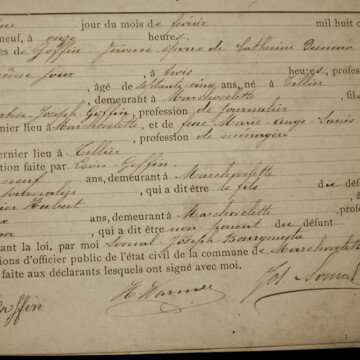 jour du mois de février mil huit c
neuf, à onze heures.
de Goffin Jérôme époux de Catherine
jour, à trois heures, profes
, âgé de septante cinq ans, né à Tillier
, demeurant à Marchovelette, fils
Joseph Goffin, profession de journalier
rnier lieu à Marchovelette, et de feue Marie Ange
, profession de ménagère
ernier lieu à Tillier
tion faite par Léon Goffin
neuf ans, demeurant à Marchovelette
journalier, qui a dit être le fils du défu
Hubert
ans, demeurant à Marchovelette
, qui a dit être non parent du défunt
ant la loi, par moi Somal Joseph Bourgmestre
ions d'officier public de l'état civil de la commune de Marchovelette
faite aux déclarants lesquels ont signé avec moi.
Goffin
Jos Somal